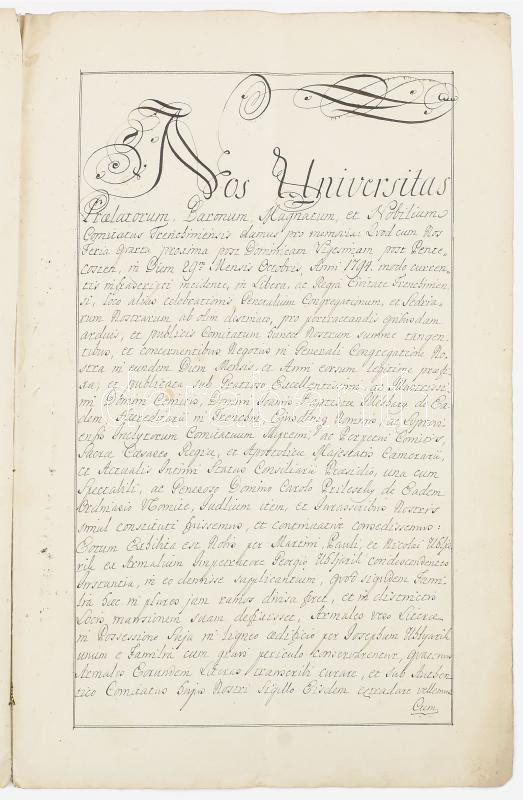 Nos Universitas
Prælatorum, Baronum, Magnatum, et Nobilium
Comitatus Trenchiniensis damus pro memoria: Quod cum Nos
Feria quarta proxima post Dominicam Vigesimam post Pente-
costen, in Diem 29nam Mensis Octobris, Anni 1794 modo curren-
tis infrascripti incidente, in Libera, ac Regia Civitate Trenchinien-
si, loco alias celebrationis Generalium Congregationum, et Sedria-
rum Nostrarum ab olim destinato, pro pertractandis quibusdam
arduis, et publicis Comitatum hunce Nostrum summe tangen-
tibus, et concernentibus Negotiis in Generali Congregatione No-
stra in eundem Diem Mensis et Anni eorsum legitime præfi-
xa, et publicata sub Præsidio Excellentissimi, ac Illustrissi-
mi Domini Comitis, Domini Joannis Baptistæ Illésházy de Ea-
dem, Hæreditarii in Trencsin, Ejusdemq Nominis, ac Lyptovi-
ensis Inclytorum Comitatuum Supremi, ac Perpetui Comitis,
Sacræ Cæsareo Regiæ, et Apostolicæ Majestatis Camerarii,
et Actualis Intimi Status Consiliarii Præsidio, una cum
Spectabili, ac Generoso Domino Carolo Prileszky de Eadem
Ordinario VComite, Judlium item, et Jurassoribus Nostris
simul constituti fuissemus, et continuative consedissemus:
Eotum Exhibita est Nobis per Martini, Pauli, et Nicolai Ublya-
rik ex Armalium Impetratore Georgio Ublyarik condescendentes
Instantia, in eo demisse supplicantium, quod siquidem Fami-
lia hæc in plures jam ramos divisa foret, et in districto
Loco mansionem suam defixisset, Armales vero Literæ
in Possessione Suja in ligneo ædificio per Josephum Ublyarik
unum e Familia cum gravi periculo conservarentur, quatenus
Armales Eorundem Literas transcribi curare, et sub Authen-
tico Comitatus hujus Nostri Sigillo Eisdem extradare vellemus
Cum